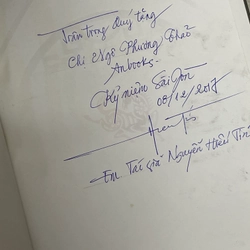 Trân trọng quý tặng
Chị Ngô Phương Thảo
Anbooks.
Kỷ niệm Sài Gòn
08/12/2017
Em Tác giả Nguyễn Hiếu Tín